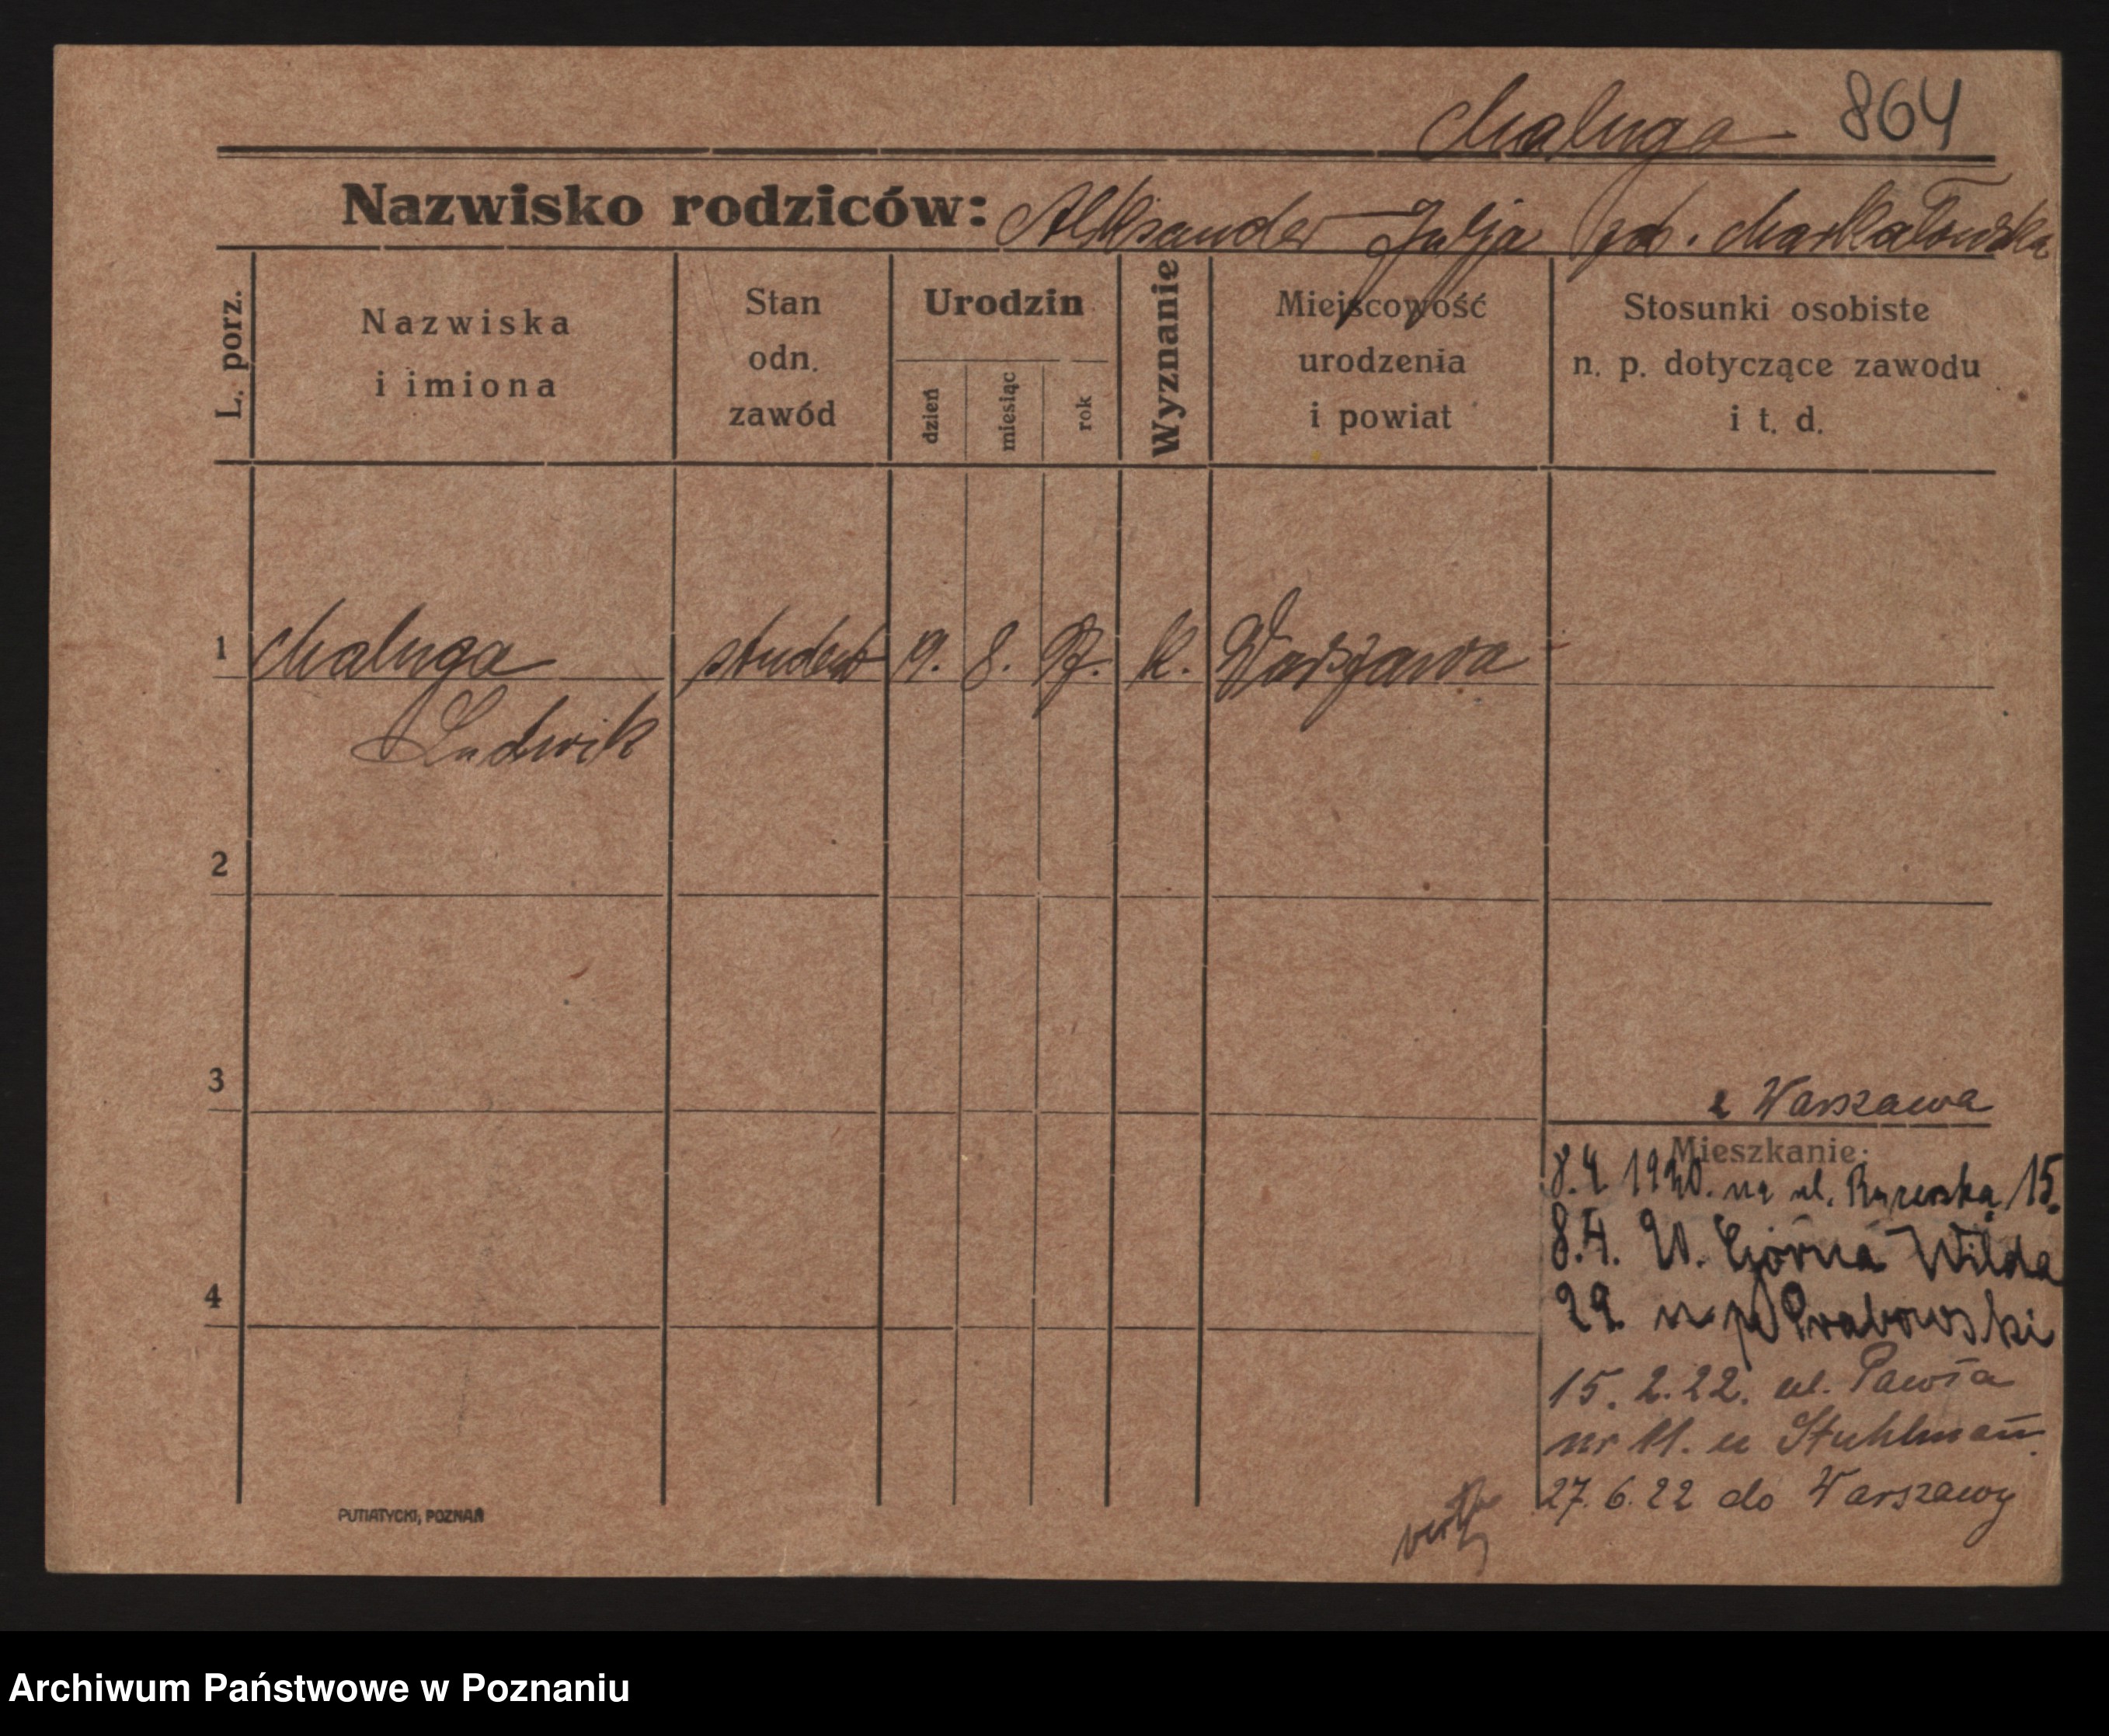 Maluga 864
Nazwisko rodziców: Aleksander Julja
L. porz.
Nazwiska
i imiona
Stan
odn.
zawód
Urodzin
dzień
miesiąc
rok
Wyznanie
Miejscowość
urodzenia
i powiat
Stosunki osobiste
n. p. dotyczące zawodu
i t. d.
1 Maluga student 19. 8. 97. k. Warszawa
Ludwik
2
3
z Warszawa
Mieszkanie:
8.4. 1920. na ul. 15.
8.4. 20. Górna Wilda
4
29. Grabowski
15. 2. 22. ul. Pawła
nr 11. u Stuhlman̄
27. 6. 22 do Warszawy
PUTIATYCKI, POZNAŃ
Archiwum Państwowe w Poznaniu